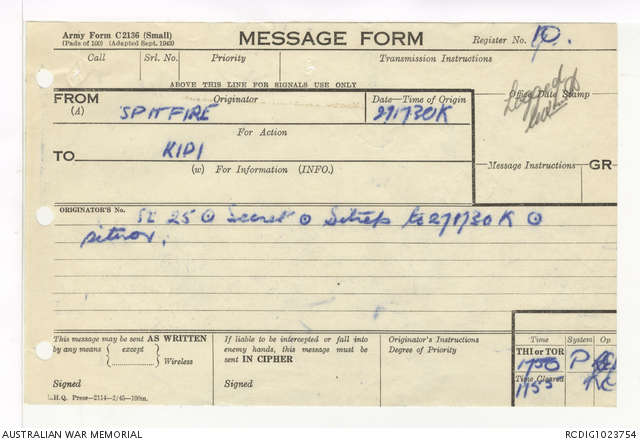 Army Form C2136 (Small)
(Pads of 100) (Adapted Sept. 1943)
MESSAGE FORM
Register No. 10.
Call Srl. No. Priority Transmission Instructions
ABOVE THIS LINE FOR SIGNALS USE ONLY
FROM Originator Date—Time of Origin Office Date Stamp
(A) SPITFIRE 271730K
Logged
For Action
TO KIPI
(w) For Information (INFO.) Message Instructions GR
ORIGINATOR'S No. 25 ⊙ Secret ⊙ Sitrep to 271730K ⊙
sitnor.
This message may be sent AS WRITTEN
by any means { except } Wireless
Signed
If liable to be intercepted or fall into
enemy hands, this message must be
sent IN CIPHER
Signed
Originator's Instructions
Degree of Priority
Time System Op
THI or TOR
1750 P
Time Cleared
1155
L.H.Q. Press—2114—2/45—100m.
AUSTRALIAN WAR MEMORIAL RCDIG1023754